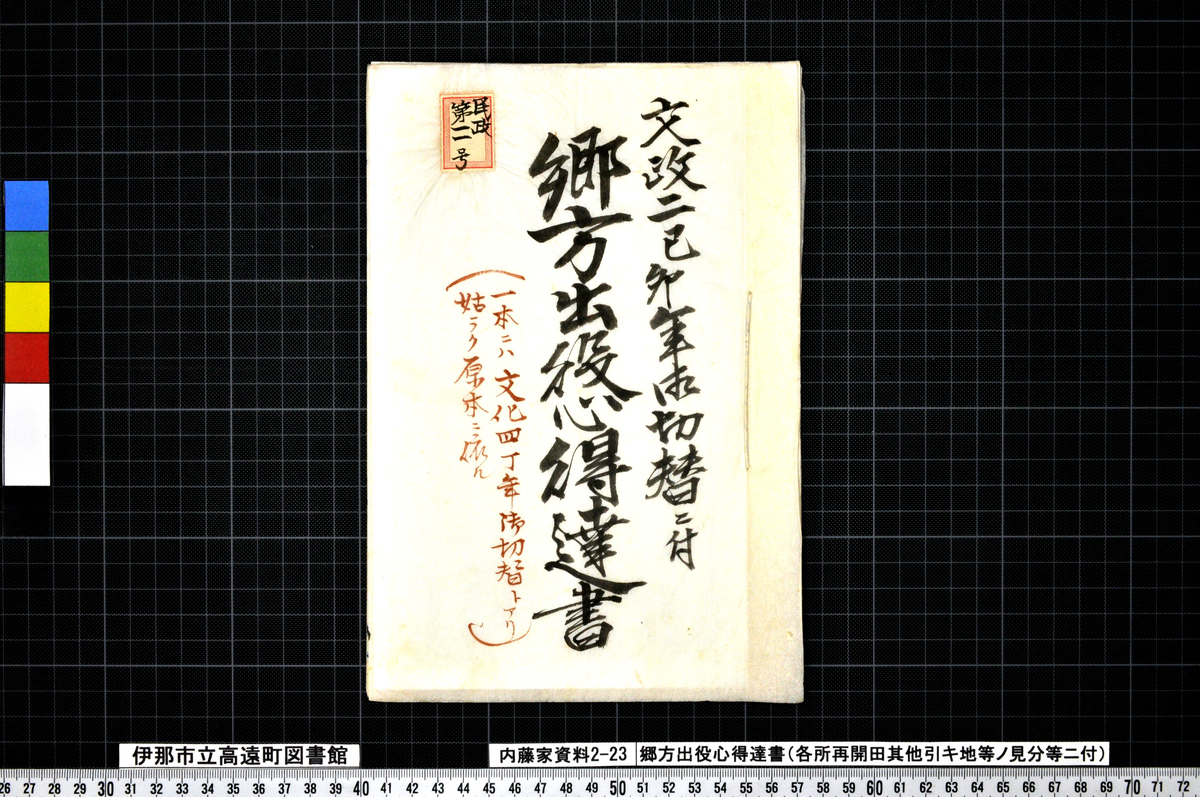 文政二己卯年御切替ニ付
郷方出役心得達書
民政
第二号
（一本ニハ文化四丁年御切替トアリ
姑ラク原本ニ依ル）
伊那市立高遠町図書館
内藤家資料2-23
郷方出役心得達書（各所再開田其他引キ地等ノ見分等ニ付）
26 27 28 29 30 31 32 33 34 35 36 37 38 39 40 41 42 43 44 45 46 47 48 49 50 51 52 53 54 55 56 57 58 59 60 61 62 63 64 65 66 67 68 69 70 71 72